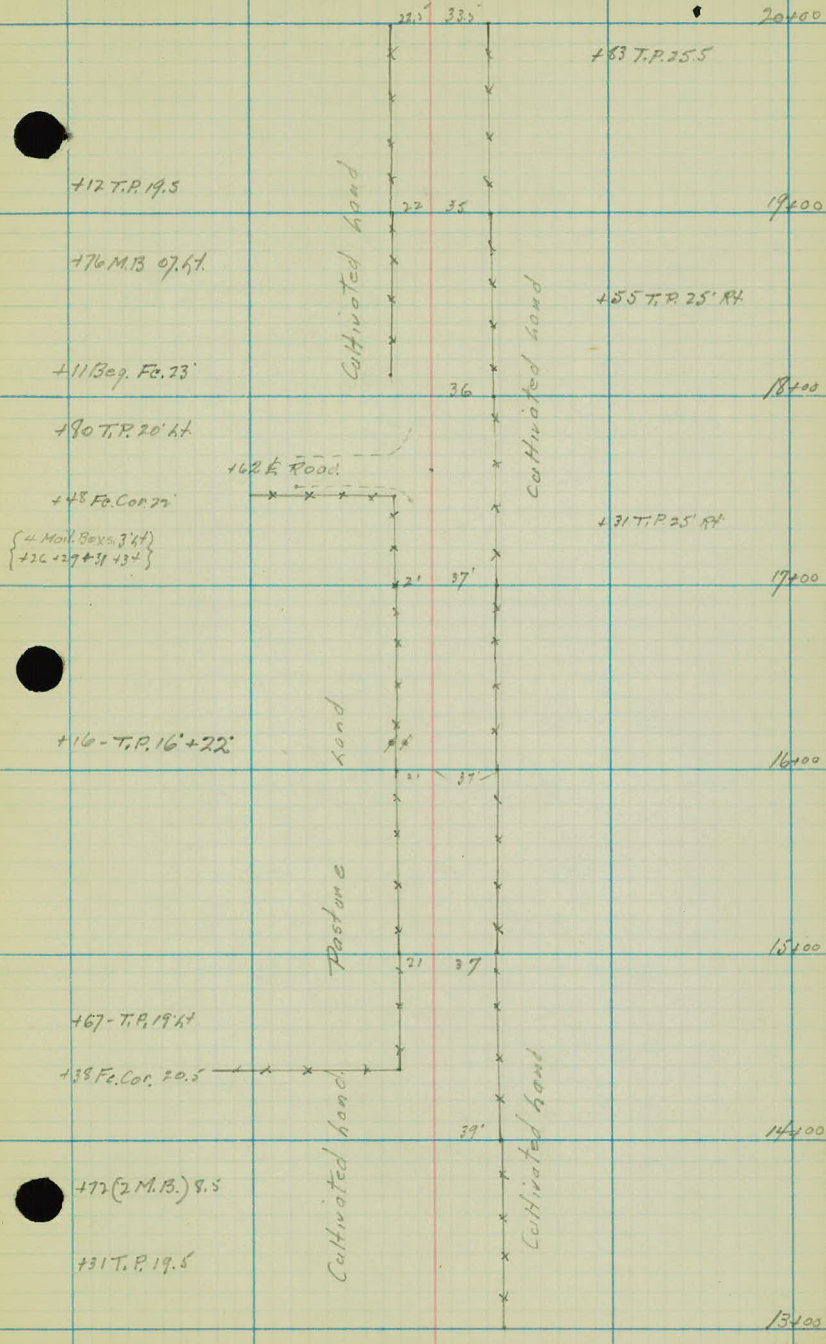 22.5 33.5 20+00
+83 T.P. 25.5
+12 T.P. 19.5
22 35 19+00
+76 M.B 07. Lt.
Cultivated Land
+55 T.P. 25' Rt
Cultivated Land
+11 Beg. Fc. 23'
36 18+00
+80 T.P. 20' Lt.
+62 ₵ Road
+48 Fc. Cor. 22'
+31 T.P. 25' Rt
{4 Mail Boxs. 3' Lt}
{+26 +29 +31 +34}
21' 37' 17+00
+16 - T.P. 16' + 22'
21 37' 16+00
Pasture Land
21 37 15+00
+67 - T.P. 19' Lt
+38 Fc. Cor. 20.5
39' 14+00
Cultivated Land
Cultivated Land
+72 (2 M.B.) 8.5
+31 T.P. 19.5
13+00